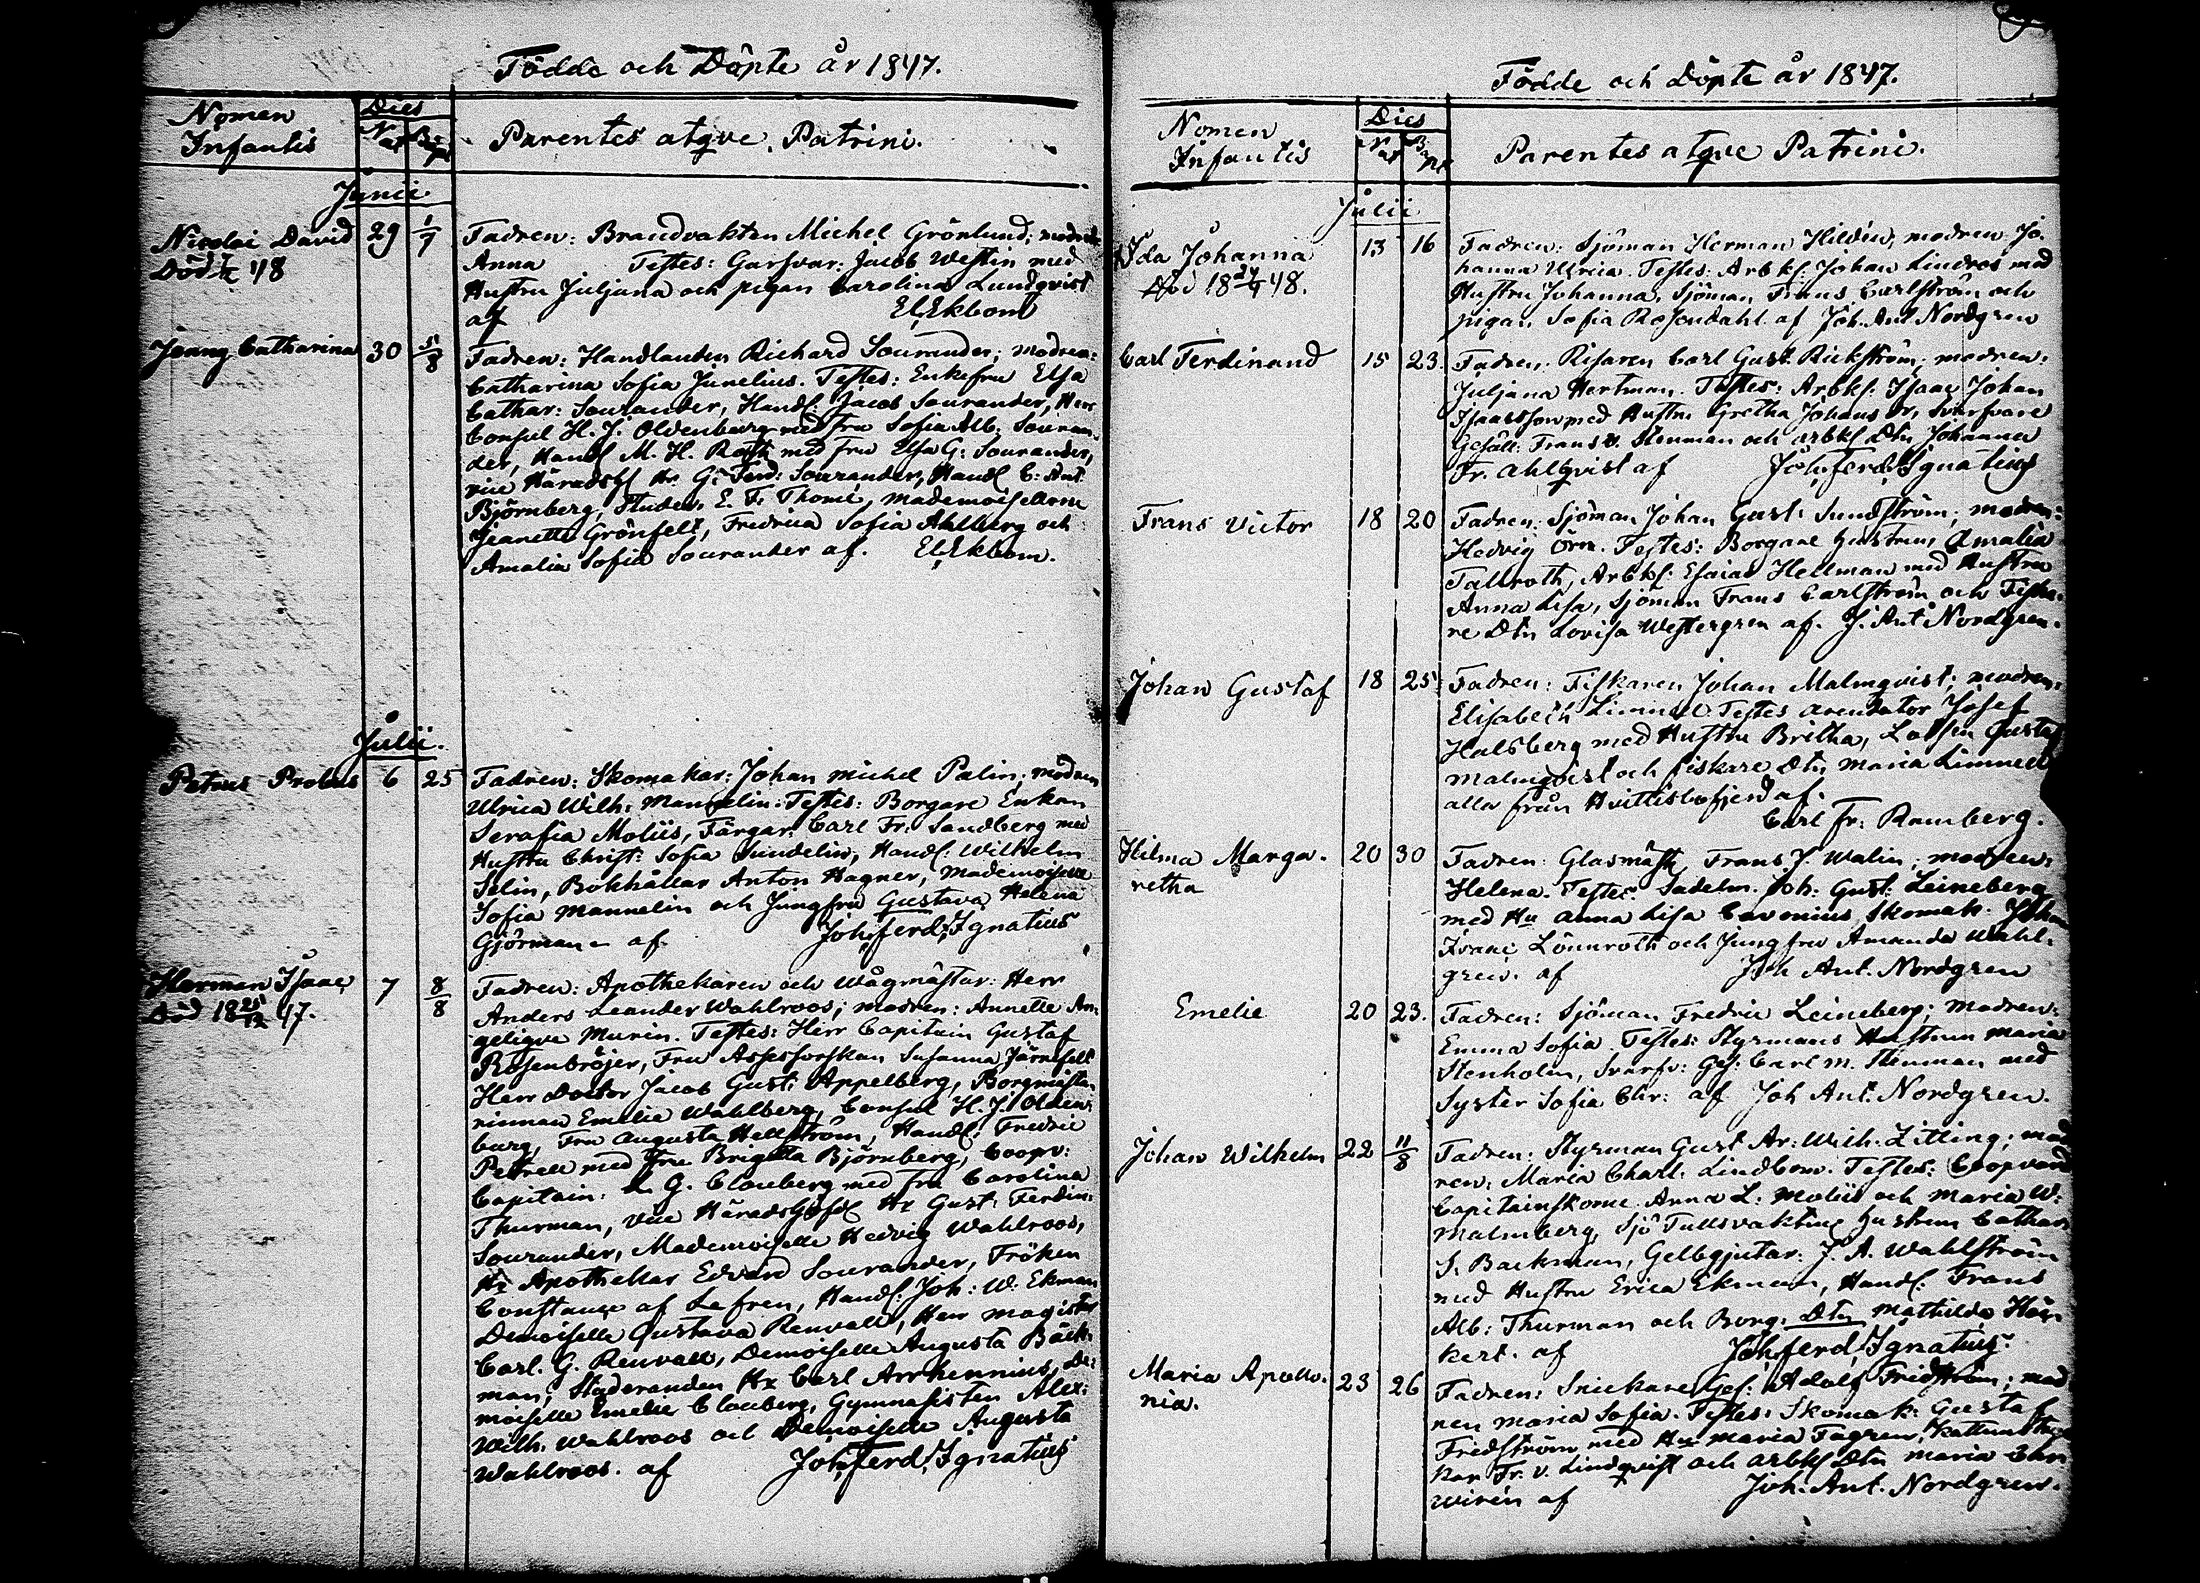 Födde och Döpte år 1847.
Nomen Infantis
Dies
Nat
Bapt
Parentes atqve Patrini.
Junii
Nicolai David 29 1/7 Fadren: Brandvakten Michel Grönlund; modren
Död 48
Anna Testes: Garfvar: Jacob Westin med
Hustru Juljana och pigan Carolina Lundqvist
af El. Ekbom
Jenny Catharina 30 5/8 Fadren: Handlanden Richard Sourander; modren:
Catharina Sofia Junelius. Testes: Enkefru Elsa
Cathar: Sourander, Handl: Jacob Sourander, Herr
Consul H. J. Oldenburg med Fru Sofia Alb: Souran-
der, Handl M. H. Roth med Fru Elsa G: Sourander,
vice Häradsh Hr. G: Ferd: Sourander, Handl C: Ant
Björnberg, Studen. E. F. Thomé, mademoisellerne
Jeanette Grönfelt, Fredrica Sofia Ahlberg och
Amalia Sofia Sourander af. El. Ekbom.
Julii.
Petrus Probus 6 25 Fadren: Skomakar: Johan Michel Palin; modren
Ulrica Wilh: Mannelin. Testes: Borgare Enkan
Serafia Moliis, Färgar: Carl Fr: Sandberg med
Hustru Christ: Sofia Sundelin, Handl: Wilhelm
Selin, Bokhållar Anton Hagner, Mademoiselle
Sofia Mannelin och Jungfru Gustava Helena
Gjörman af. Joh. Ferd. Ignatius
Herman Isaac 7 8/8 Fadren: Apothekaren och Vågmästar: Herr
Död 18 25/12 47.
Anders Leander Wahlroos; modren: Annette An-
geliqve Murin. Testes: Herr Capitain Gustaf
Rosenbröijer, Fru Assessorskan Susanna Järnefelt
Herr Doctor Jacob Gust: Appelberg, Borgmästa-
rinnan Emelie Wahlberg, Consul H. J. Olden-
burg, Fru Augusta Hellström, Handl: Fredric
Petrell med Fru Brigitta Björnberg, Coopv:
Capitain: L. G. Clouberg med Fru Carolina
Thurman, Vice Häradshöfd Hr Gust: Ferdin:
Sourander, Mademoiselle Hedvig Wahlroos,
Hr Apothekar Edvard Sourander, Fröken
Constance af Lefren, Handl: Joh: W: Ekman
Demoiselle Gustava Renvall, Herr Magister
Carl. G. Renvall, Demoiselle Augusta Bäck-
man, Studeranden Hr Carl Arrhennius, De-
moiselle Emelie Clouberg, Gymnasisten Alex:
Wilh: Wahlroos och Demoiselle Augusta
Wahlroos. af Joh. Ferd. Ignatius
Födde och Döpte år 1847.
Nomen Infantis
Dies
Nat
Bapt
Parentes atqve Patrini.
Julii
Ida Johanna 13 16 Fadren: Sjöman Herman Hildén; modren Jo-
Död 18 48.
hanna Ulrica. Testes: Arbk: Johan Lindros med
Hustru Johanna, Sjöman Frans Carlström och
pigan Sofia Rosendahl. af Joh. Ant. Nordgren
Carl Ferdinand 15 23. Fadren: Ritaren Carl Gust: Rickström; modren:
Juljana Hertman. Testes: Arbk: Isaac Johan
Isaacsson med Hustru Gretha Johans dr, Svarfvare
Gesäll: Frans V. Stenman och arbk Dtn Johanna
Fr. Ahlqvist af Joh. Ferd. Ignatius
Frans Victor 18 20 Fadren: Sjöman Johan Gust: Sundström; modren:
Hedvig Örn. Testes: Borgare hustrun Amalia
Tallroth, Arbk: Esaias Hellman med Hustru
Anna Lisa, Sjöman Frans Carlström och Fiska-
re Dtn Lovisa Westergren af. J. Ant Nordgren.
Johan Gustaf 18 25 Fadren: Fiskaren Johan Malmqvist; modren:
Elisabeth Limnell Testes arendator Josef
Halsberg med Hustru Britha, Lotsen Gustaf
Malmqvist och fiskare Dtn Maria Limnell
alla från Hvittisbofjerd af.
Carl Fr: Ramberg.
Hilma Marga- 20 30 Fadren: Glasmäst. Frans J. Walin; modren:
retha
Helena. Testes: Sadelm. Joh: Gust: Leineberg
med Hu Anna Lisa Cavonius, Skomak. Johan
Franc Lönnroth och Jungfru Amanda Wahl-
gren. af Joh Ant. Nordgren
Emelie 20 23. Fadren: Sjöman Fredric Leineberg; Modren:
Emma Sofia. Testes: Styrmans Hustrun Maria
Stenholm, Svarfv: Ges: Carl M. Stenman med
Syster Sofia Chr: af Joh Ant. Nordgren.
Johan Wilhelm 22 11/8 Fadren: Styrman Gust Ar: Wilh. Litling; mod
ren: Maria Charl: Lindbom. Testes: Coopvard
Capitainskorne Anna L. Moliis och Maria W.
Malmberg, Sjö Tullsvaktens hustrun Cathar
S. Backman, Gelbgjutar: J. A. Wahlström
med Hustru Erica Ekman, Handl: Frans
Alb: Thurman och Borg: Dtn Mathilda Hör-
kert. af Joh. Ferd. Ignatius.
Maria Apollo- 23 26 Fadren: Snickare Ges: Adolf Fridström; mod
nia.
ren Maria Sofia. Testes: Skomak: Gustaf
Fridström med Hu Maria Fagren, Kattunstryc
kar Fr. V. Lindqvist och arbk Dtn Maria Chr
Wirén af Joh. Ant. Nordgren.